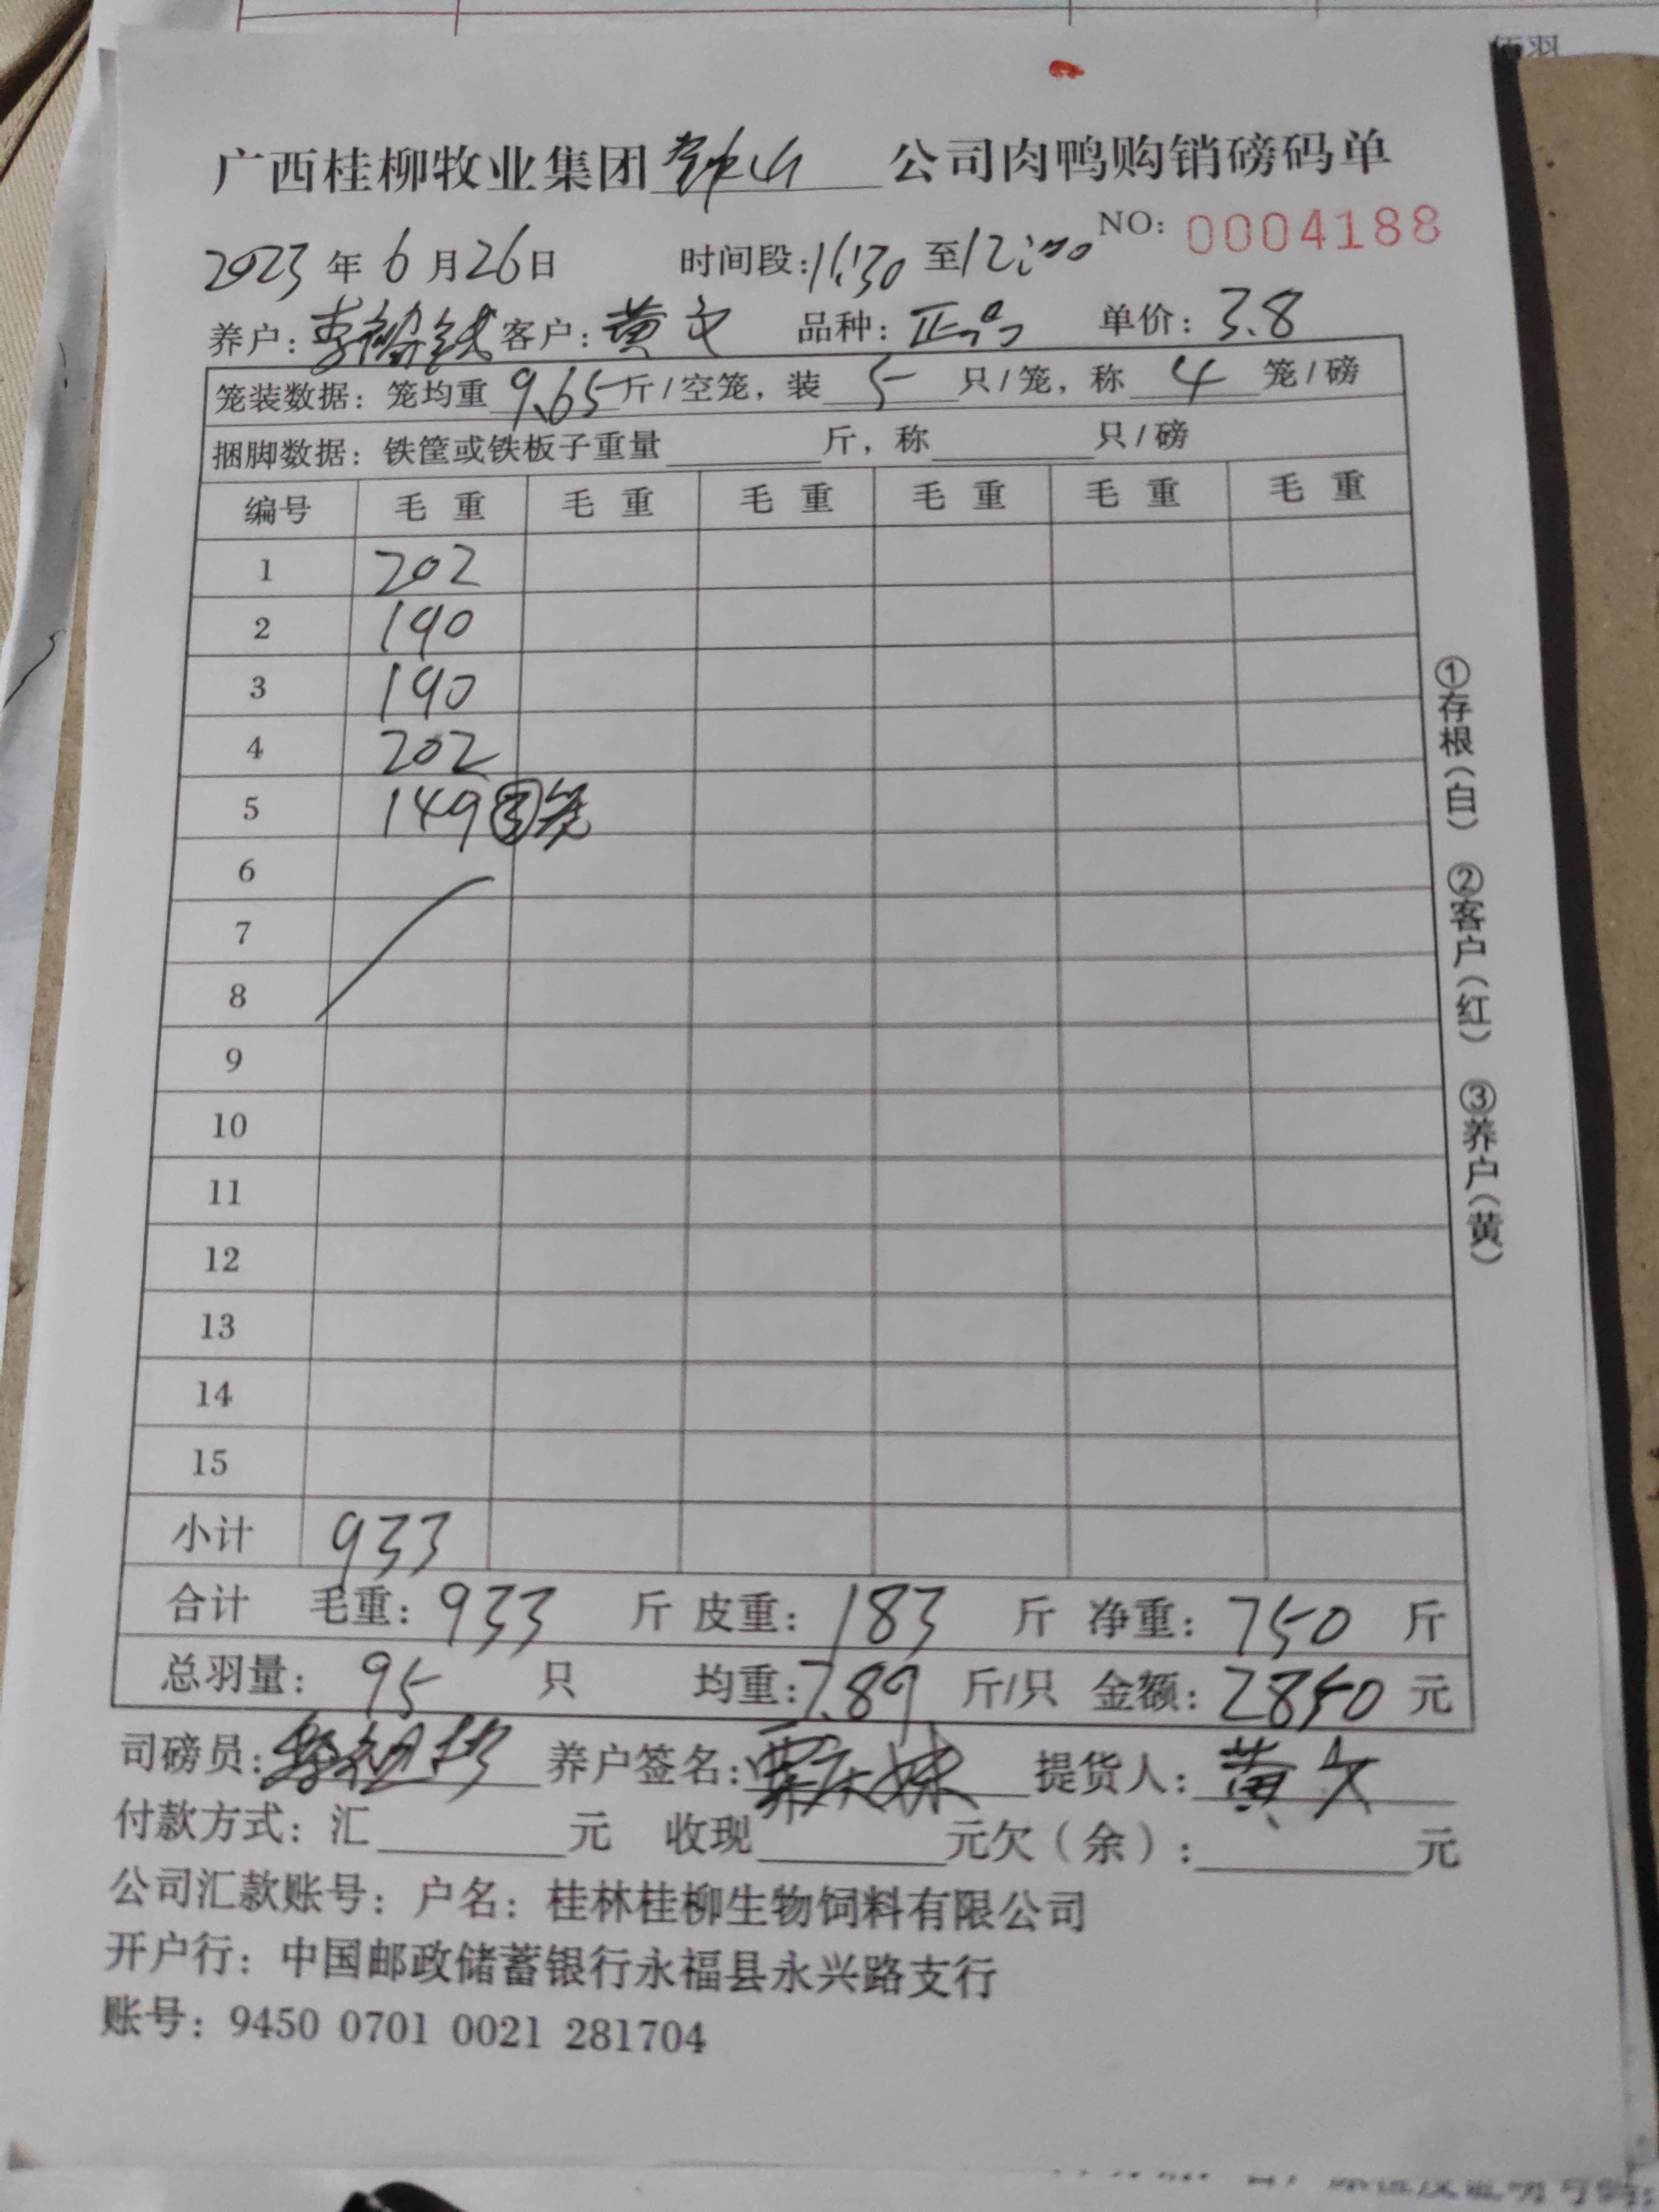 广西桂柳牧业集团钟山公司肉鸭购销磅码单
NO: 0004188
2023年6月26日 时间段:11:30至12:00
养户: 李 钱 客户: 黄文 品种: 正品 单价: 3.8
笼装数据: 笼均重9.65斤/空笼, 装5只/笼, 称4笼/磅
捆脚数据: 铁筐或铁板子重量 斤, 称 只/磅
编号 毛重 毛重 毛重 毛重 毛重 毛重
1 202
2 190
3 190
4 202
5 149 ③笼
6
7
8
9
10
11
12
13
14
15
小计 933
合计 毛重: 933 斤 皮重: 183 斤 净重: 750 斤
总羽量: 95 只 均重: 7.89 斤/只 金额: 2850 元
司磅员: 养户签名: 覃 妹 提货人: 黄文
付款方式: 汇 元 收现 元欠(余): 元
公司汇款账号: 户名: 桂林桂柳生物饲料有限公司
开户行: 中国邮政储蓄银行永福县永兴路支行
账号: 9450 0701 0021 281704
①存根(白) ②客户(红) ③养户(黄)